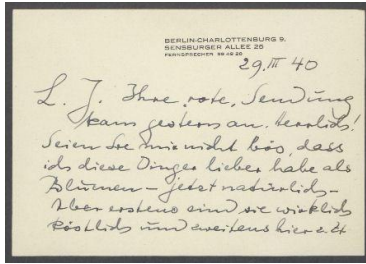 BERLIN-CHARLOTTENBURG 9.
SENSBURGER ALLEE 26
FERNSPRECHER 99 42 25
29. III 40
L. J. Ihre „rote“ Sendung
kam gestern an. Herrlich!
Seien Sie mir nicht bös, dass
ich diese Dinger lieber habe als
Blumen – jetzt natürlich –
Aber erstens sind sie wirklich
köstlich und zweitens hier z. Zt